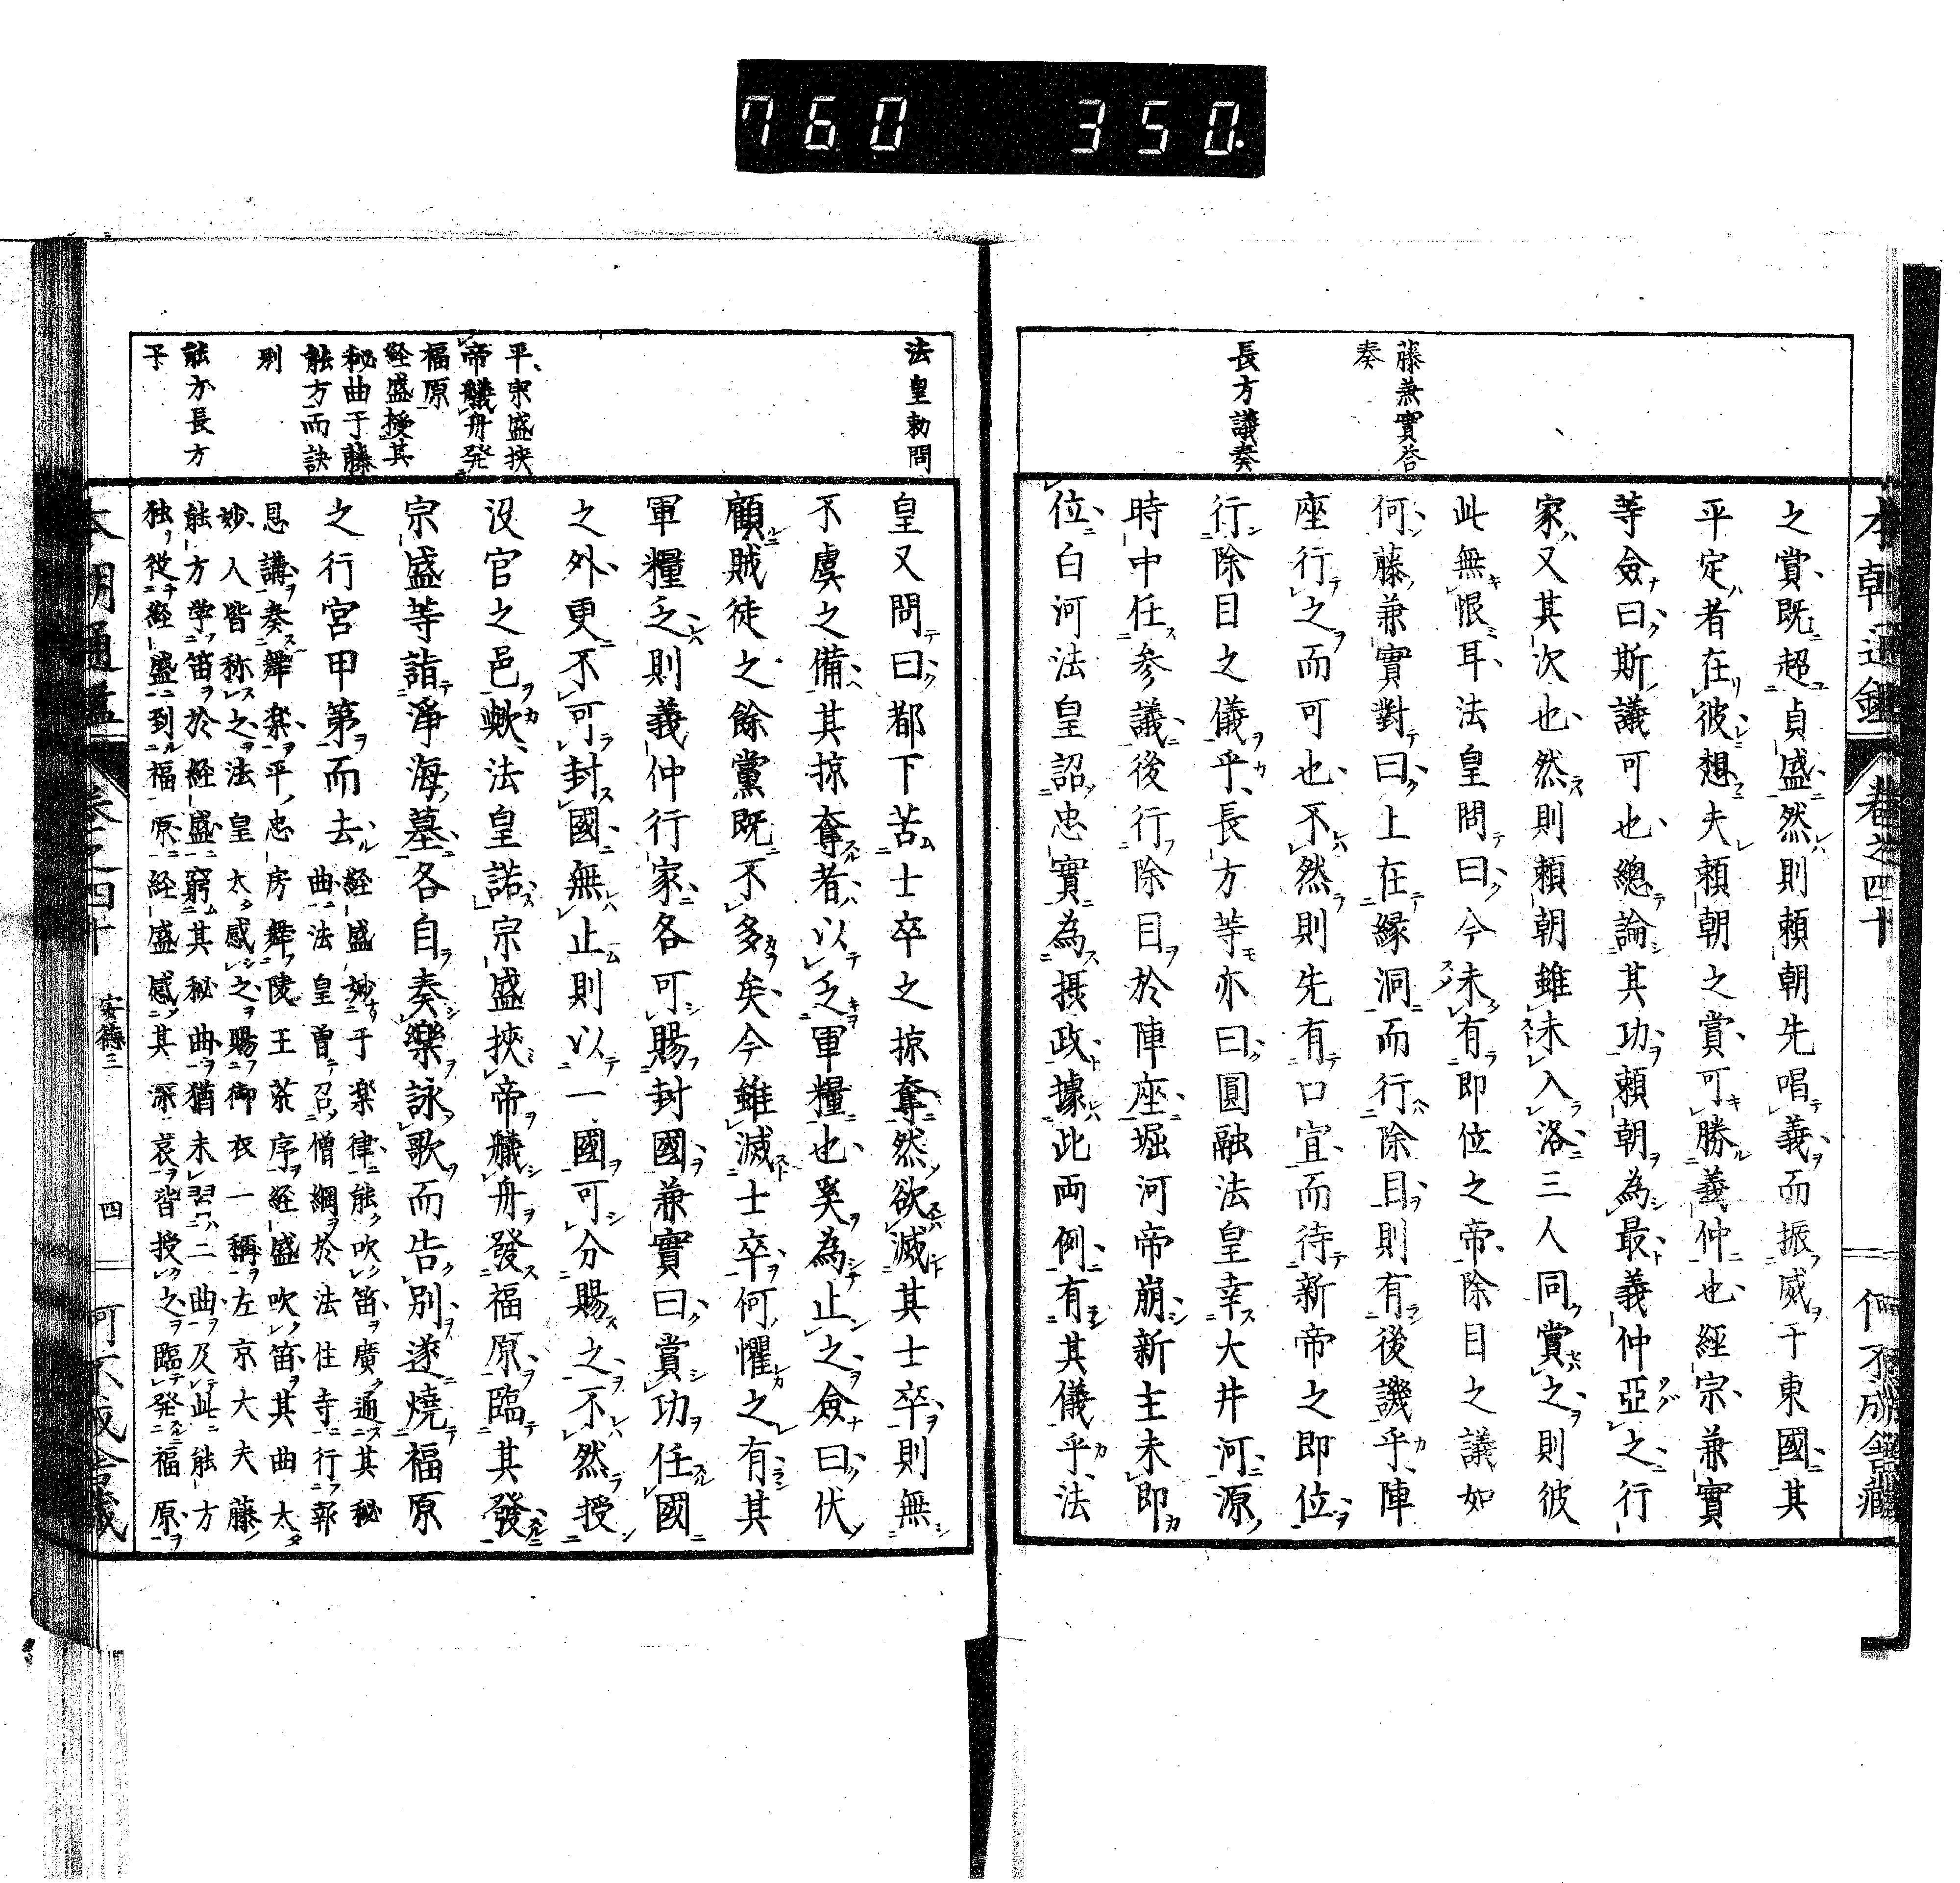 760 350.
本朝通鑑 卷之四十 何不成舍藏
藤兼實荅
奏
長方議奏
之賞既超貞盛然則頼朝先唱義而振威于東國其
平定者在彼想夫頼朝之賞可勝義仲也經宗兼實
等僉曰斯議可也總論其功頼朝為最義仲亞之行
家又其次也然則頼朝雖未入洛三人同賞之則彼
此無恨耳法皇問曰今未有即位之帝除目之議如
何藤兼實對曰上在縁洞而行除目則有後譏乎陣
座行之而可也不然則先有口宣而待新帝之即位
行除目之儀乎長方等亦曰圓融法皇幸大井河源
時中任参議後行除目於陣座堀河帝崩新主未即
位白河法皇詔忠實為摂政據此両例有其儀乎法
法皇勅問
平宗盛挾
帝艤舟発
福原
経盛授其
秘曲于藤
能方而訣
別
能方長方
子
皇又問曰都下苦士卒之掠奪然欲減其士卒則無
不虞之備其掠奪者以乏軍糧也奚為止之僉曰伏
顧賊徒之餘黨既不多矣今雖減士卒何懼之有其
軍糧乏則義仲行家各可賜封國兼實曰賞功任國
之外更不可封國無止則以一國可分賜之不然授
沒官之邑歟法皇諾宗盛挾帝艤舟發福原臨其發
宗盛等詣淨海墓各自奏樂詠歌而告別遂燒福原
之行宮甲第而去
経盛妙于楽律能吹笛廣通其秘
曲法皇曽召僧綱於法住寺行報
恩講奏舞楽平忠房舞陵王荒序経盛吹笛其曲太
妙人皆称之法皇太感之賜御衣一稱左京大夫藤
能方学笛於経盛窮其秘曲猶未習二曲及此能方
独従経盛到福原経盛感其深哀皆授之臨発福原
本朝通鑑 卷之四十 安徳三 四 何不成舍藏